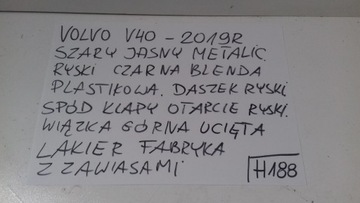 VOLVO V40 - 2019R
SZARY JASNY METALIC.
RYSKI CZARNA BLENDA
PLASTIKOWA. DASZEK RYSKI
SPÓD KLAPY OTARCIE RYSKI.
WIĄZKA GÓRNA UCIĘTA
LAKIER FABRYKA
Z ZAWIASAMI
H188